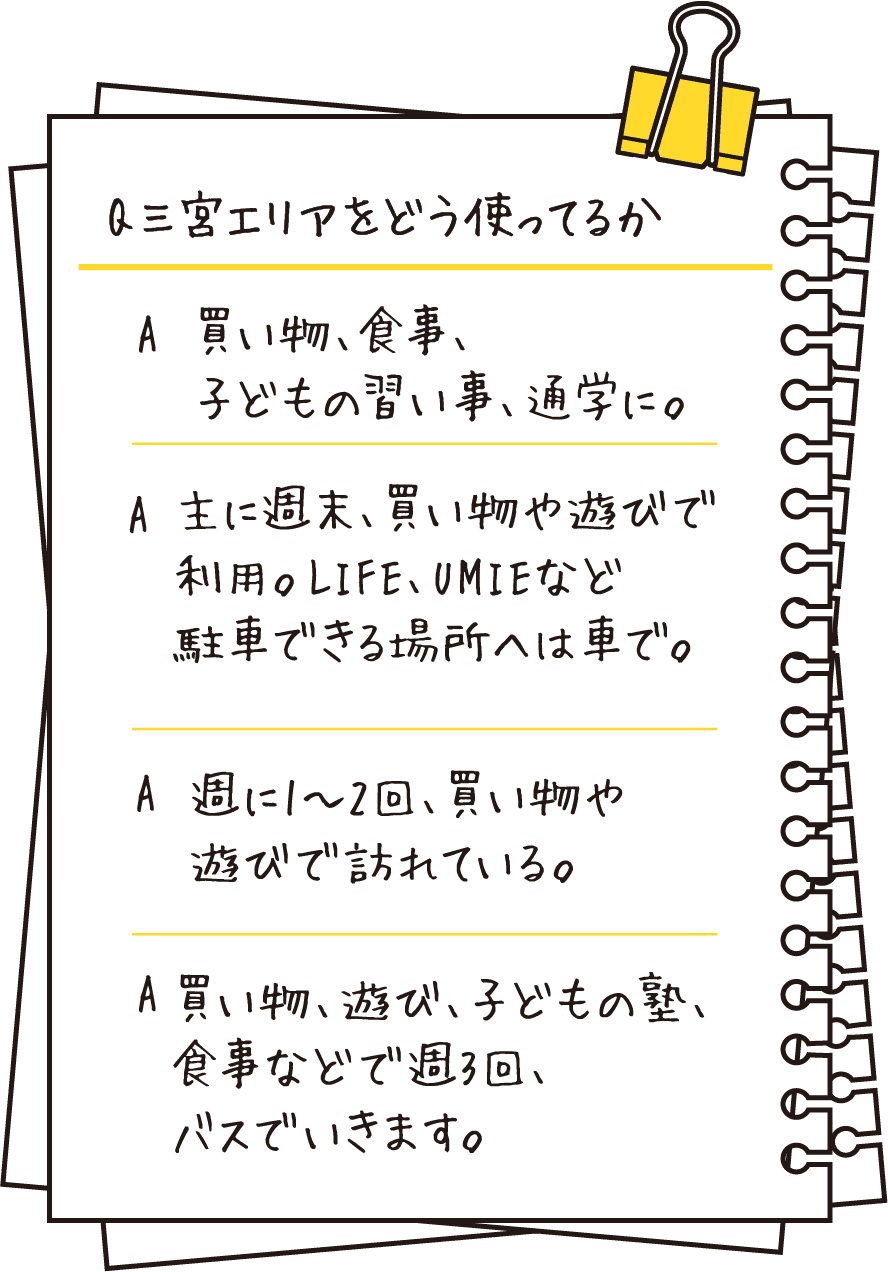 Q三宮エリアをどう使ってるか
A 買い物、食事、
子どもの習い事、通学に。
A 主に週末、買い物や遊びで
利用。LIFE、UMIEなど
駐車できる場所へは車で。
A 週に1〜2回、買い物や
遊びで訪れている。
A 買い物、遊び、子どもの塾、
食事などで週3回、
バスでいきます。